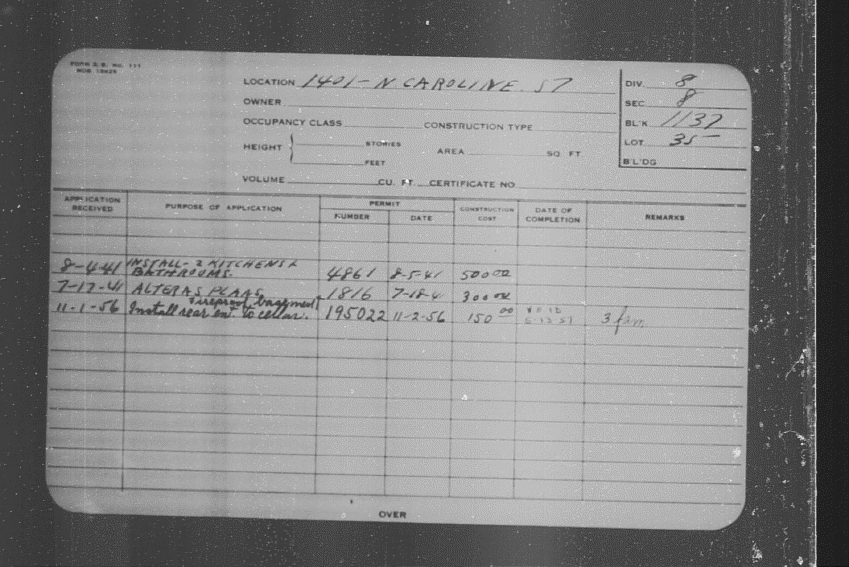 FORM S.B. NO. 111
LOCATION 1401 - N CAROLINE. ST
OWNER
OCCUPANCY CLASS CONSTRUCTION TYPE
HEIGHT STORIES FEET AREA SQ. FT
VOLUME CU. FT. CERTIFICATE NO
DIV. 8
SEC 8
BL'K 1137
LOT 35
B'L'DG
APPLICATION RECEIVED PURPOSE OF APPLICATION PERMIT NUMBER DATE CONSTRUCTION COST DATE OF COMPLETION REMARKS
8-4-41 INSTALL - 2 KITCHENS & BATHROOMS. 4861 8-5-41 500 00
7-17-41 ALTER AS PLANS 1816 7-18-41 300 00
11-1-56 Fireproof basement Install rear ent. to cellar. 195022 11-2-56 150 00 3 fam
OVER